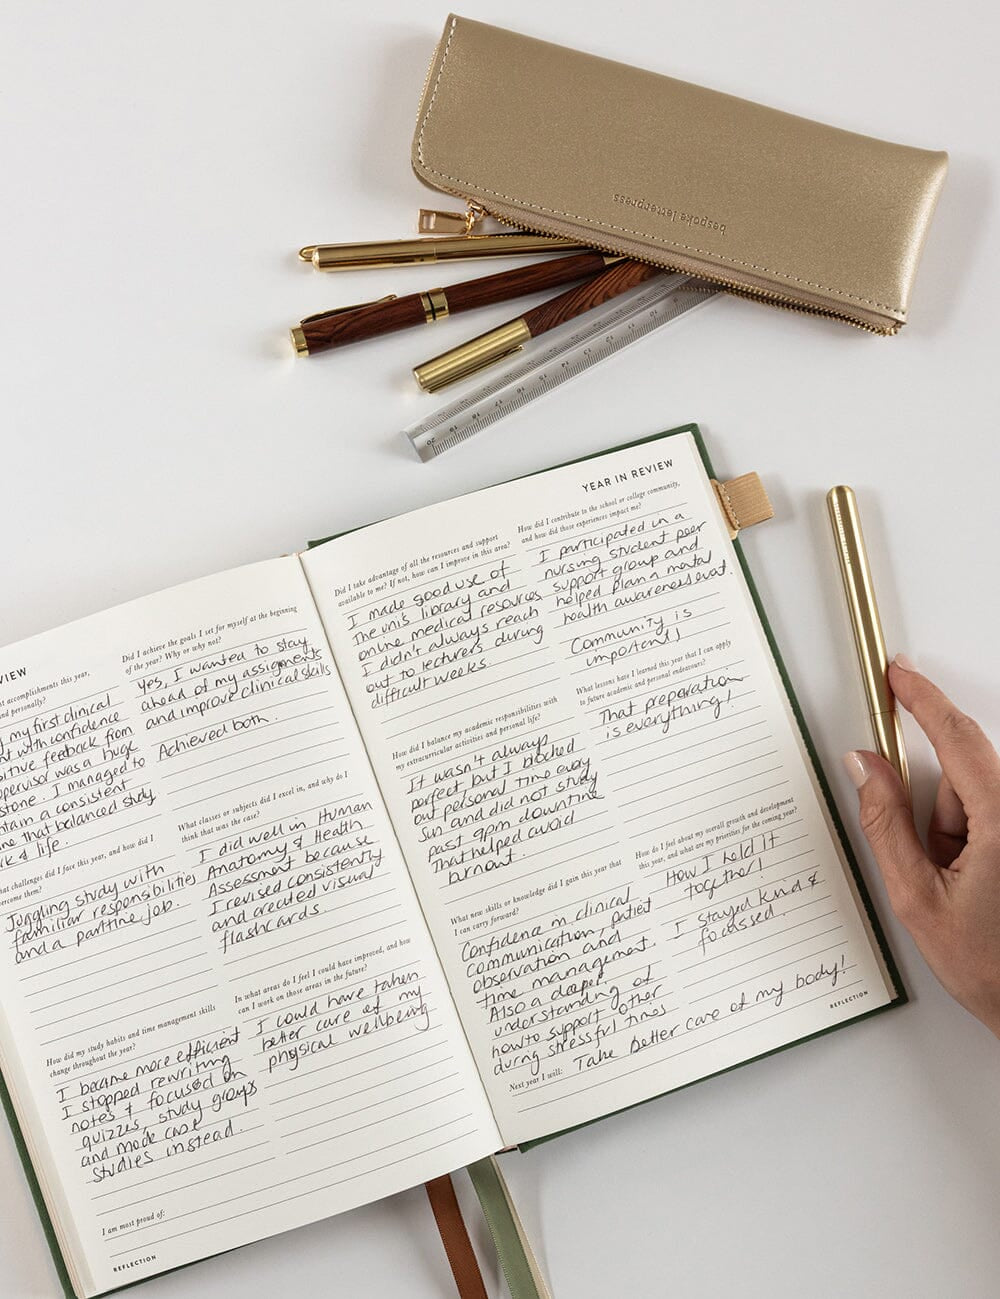 bespoke letterpress
YEAR IN REVIEW
Did I take advantage of all the resources and support
available to me? If not, how can I improve in this area?
I made good use of
The uni's library and
online medical resources
I didn't always reach
out to lecturers during
difficult weeks.
How did I contribute to the school or college community,
and how did those experiences impact me?
I participated in a
nursing student peer
support group and
helped plan a mental
health awareness evat.
Community is
important!
How did I balance my academic responsibilities with
my extracurricular activities and personal life?
It wasn't always
perfect but I blocked
out personal time every
Sun and did not study
past 9pm downtime
That helped avoid
burnout.
What lessons have I learned this year that I can apply
to future academic and personal endeavours?
That preparation
is everything!
What new skills or knowledge did I gain this year that
I can carry forward?
Confidence in clinical
communication, patiet
observation and
time management.
Also a deeper
understanding of
how to support other
during stressful times
How do I feel about my overall growth and development
this year, and what are my priorities for the coming year?
How I held it
together!
I stayed kind &
focussed.
Next year I will: Take better care of my body!
REFLECTION
VIEW
accomplishments this year,
and personally?
my first clinical
with confidence
feedback from
was a huge
I managed to
a consistent
that balanced study
& life.
Did I achieve the goals I set for myself at the beginning
of the year? Why or why not?
Yes, I wanted to stay
ahead of my assignments
and improve clinical skills
Achieved both.
challenges did I face this year, and how did I
overcome them?
Juggling study with
familiar responsibilities
and a partime job.
What classes or subjects did I excel in, and why do I
think that was the case?
I did well in Human
Anatomy & Health
Assessment because
I revised consistently
and created visual
flashcards.
How did my study habits and time management skills
change throughout the year?
I became more efficient
I stopped rewriting
notes & focused on
quizzes, study groups
and made case
studies instead.
In what areas do I feel I could have improved, and how
can I work on those areas in the future?
I could have taken
better care of my
physical wellbeing
I am most proud of:
REFLECTION